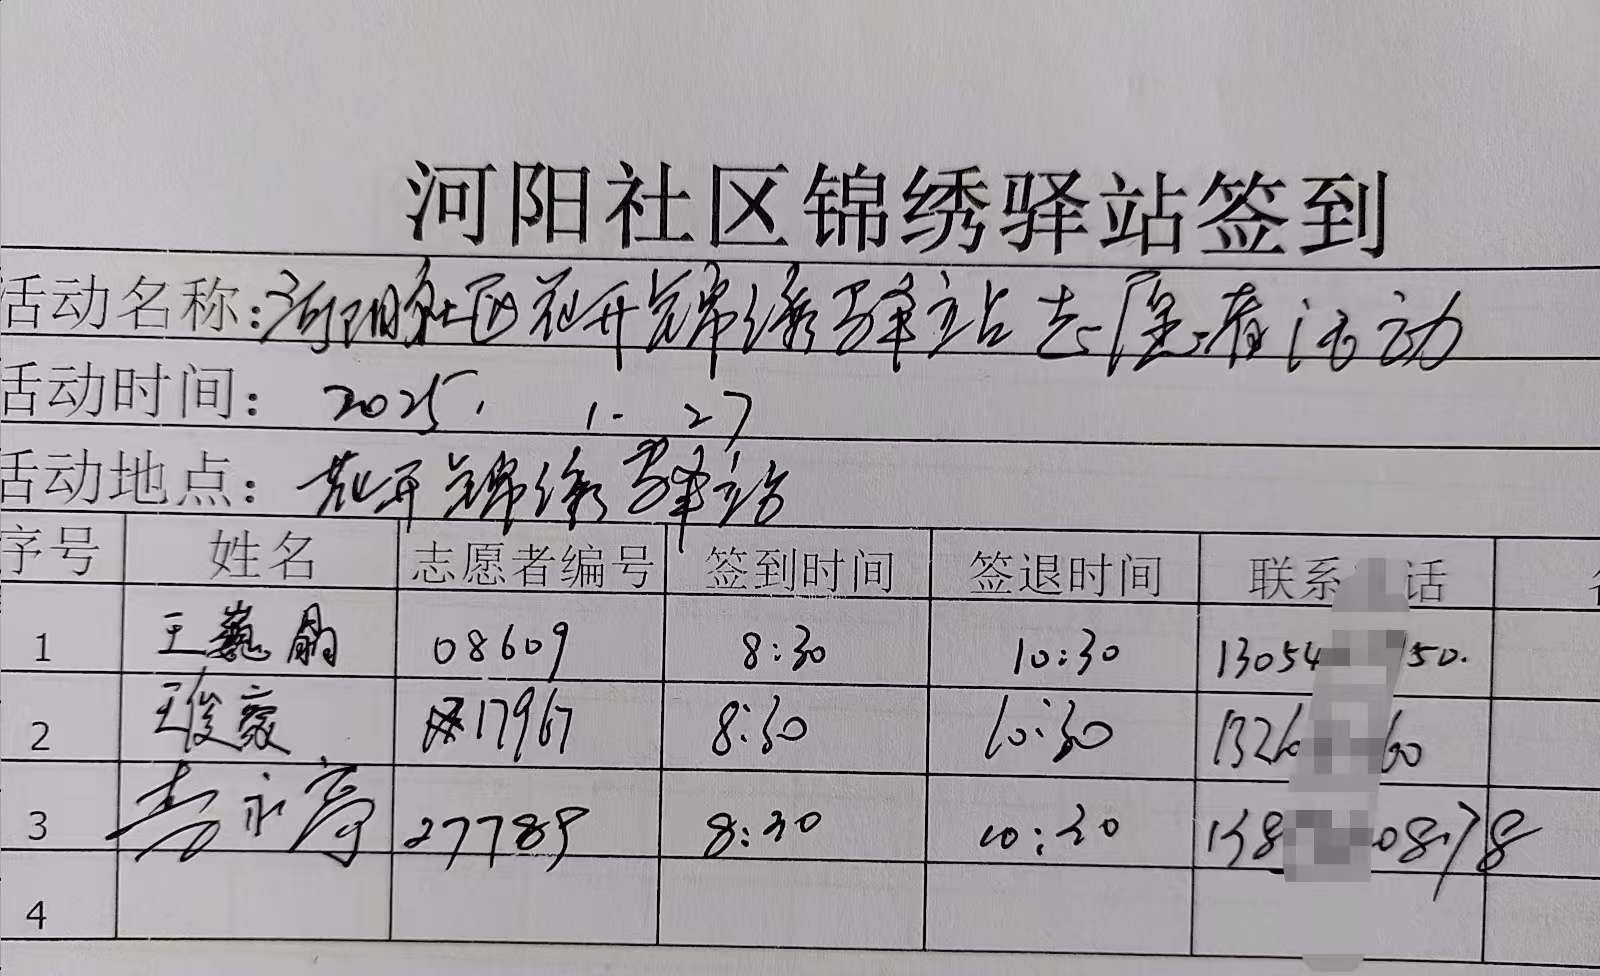 河阳社区锦绣驿站签到
活动名称:河阳社区花开锦绣驿站志愿者活动
活动时间: 2025. 1. 27
活动地点: 花开锦绣驿站
序号 姓名 志愿者编号 签到时间 签退时间 联系 话
1 王巍 08609 8:30 10:30 13054 50.
2 王俊豪 17967 8:30 10:30 1326 60
3 永 27789 8:30 10:30 138 0878
4